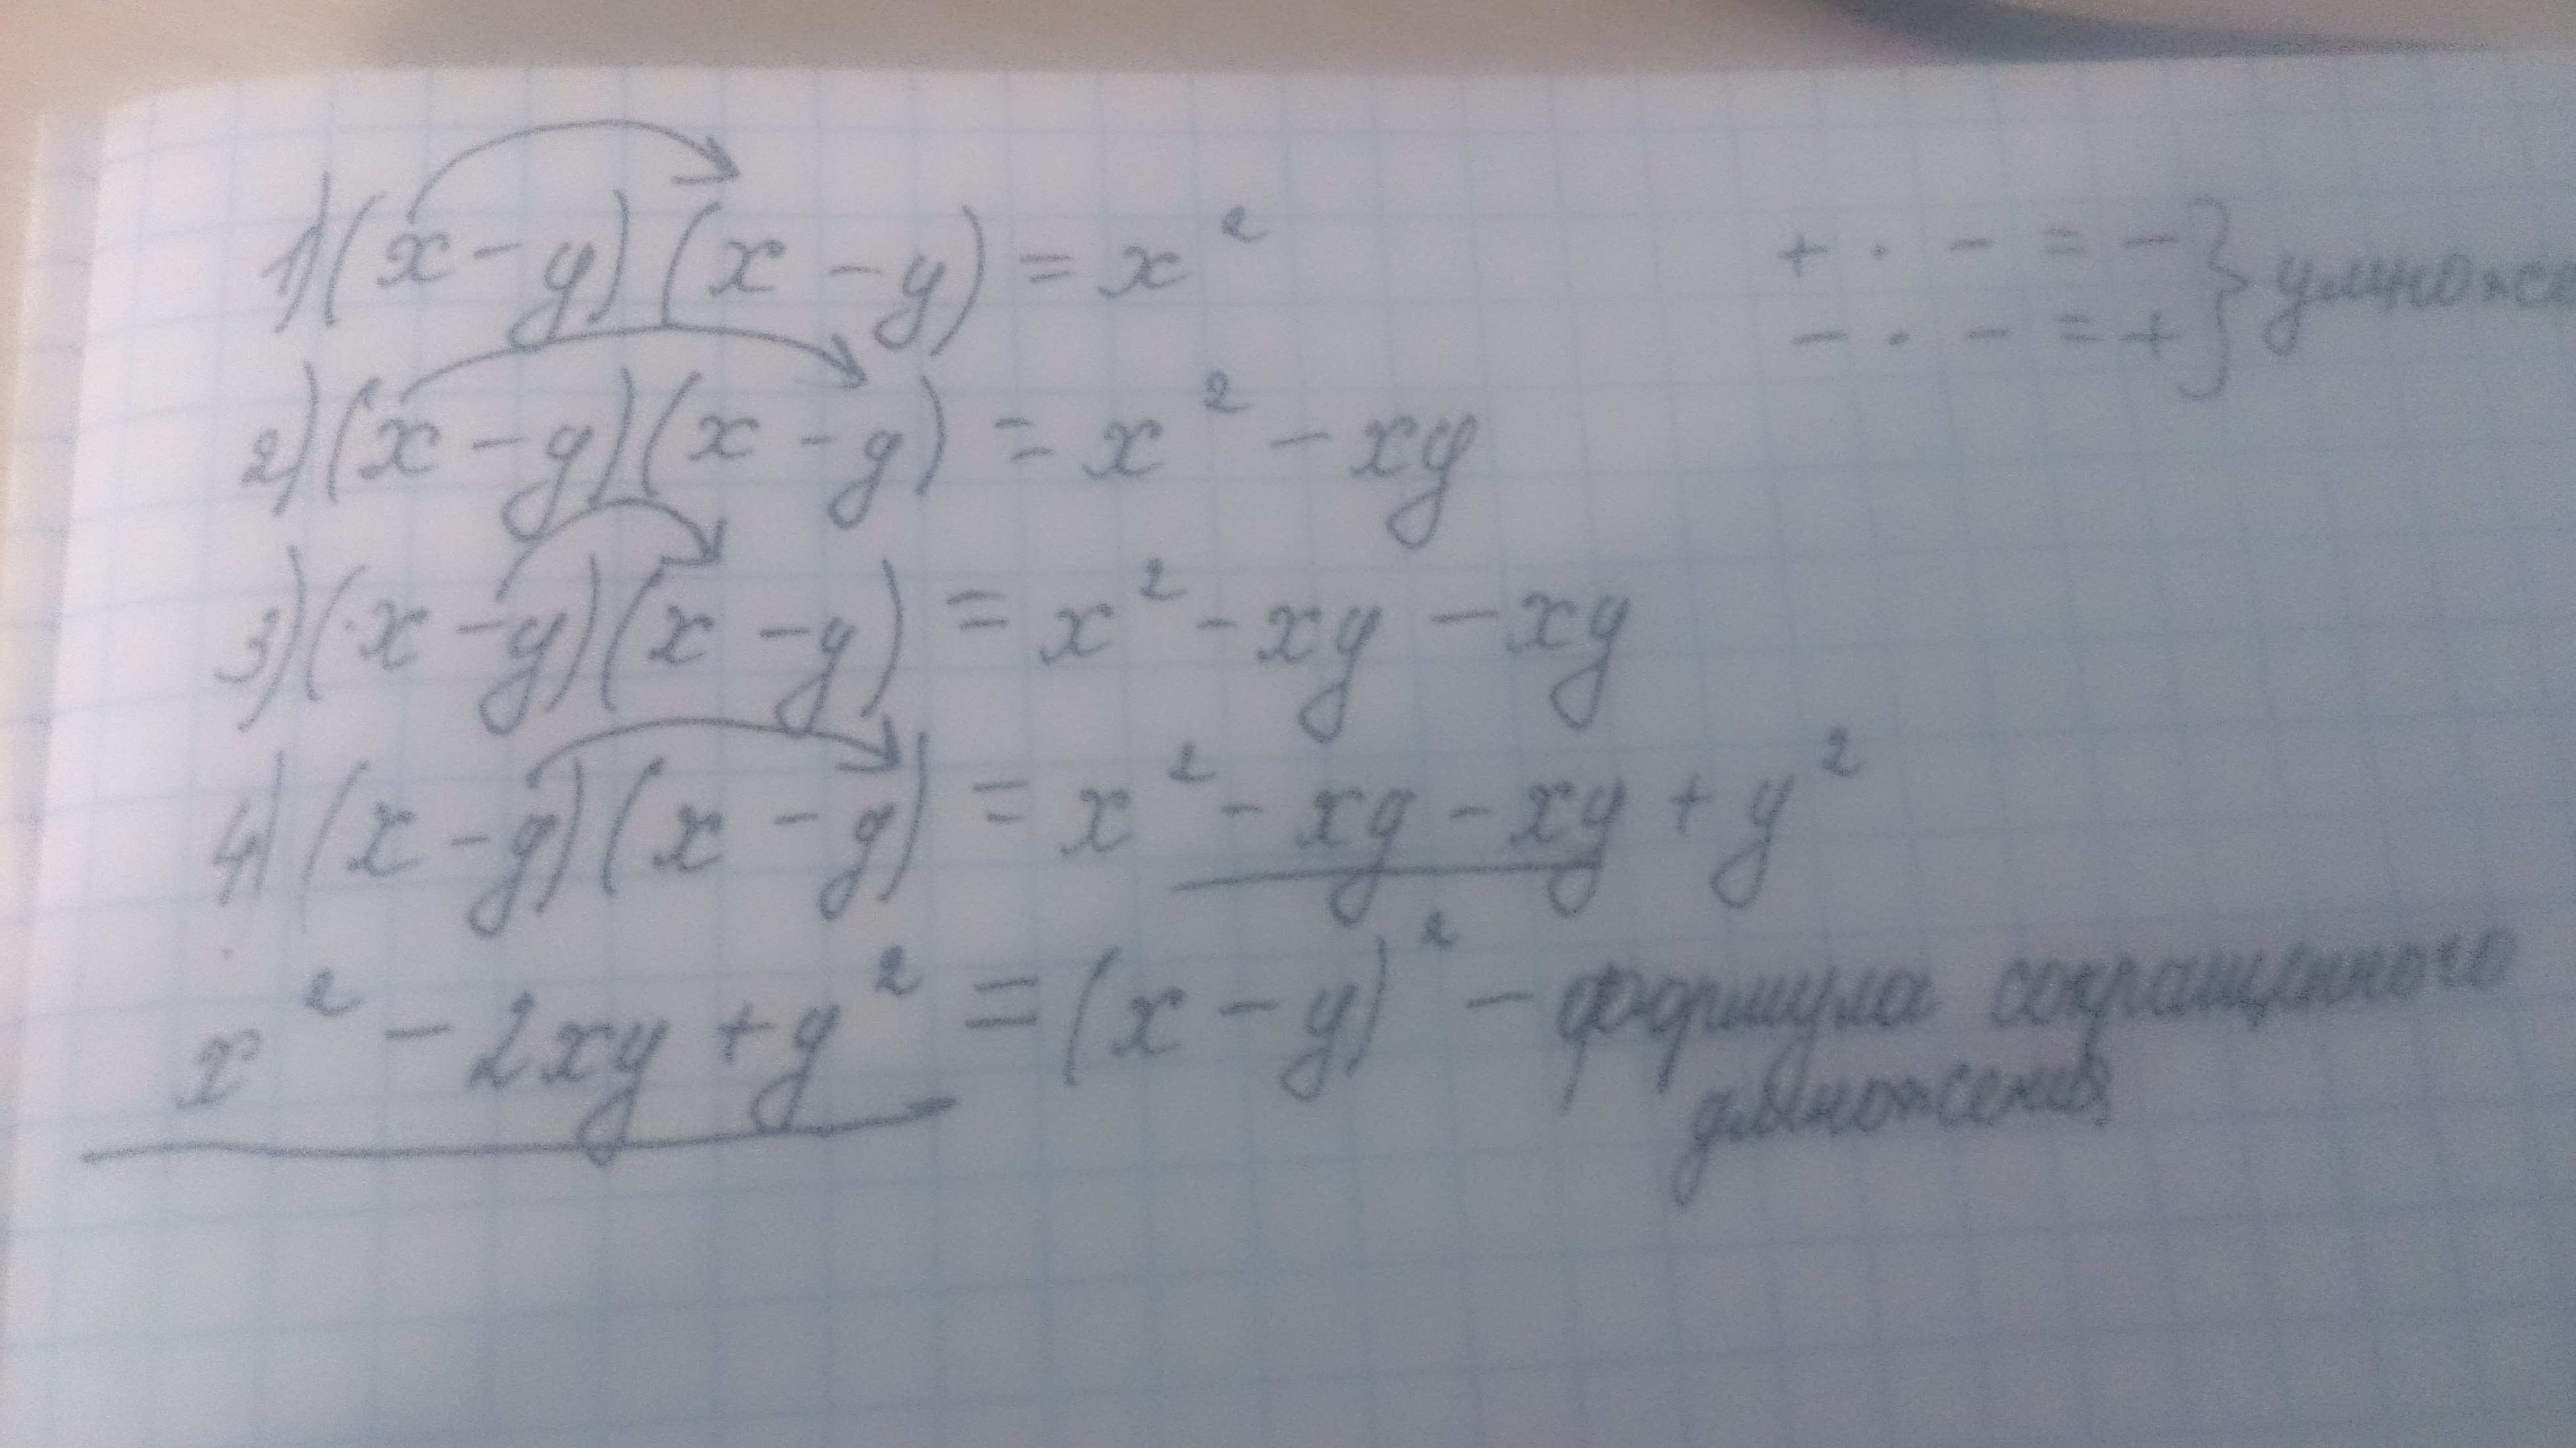 1) (x - y) (x - y) = x²
+ · - = -
- · - = +
} умноже
2) (x - y) (x - y) = x² - xy
3) (x - y) (x - y) = x² - xy - xy
4) (x - y) (x - y) = x² - xy - xy + y²
x² - 2xy + y² = (x - y)² - формула сокращенного
умножения